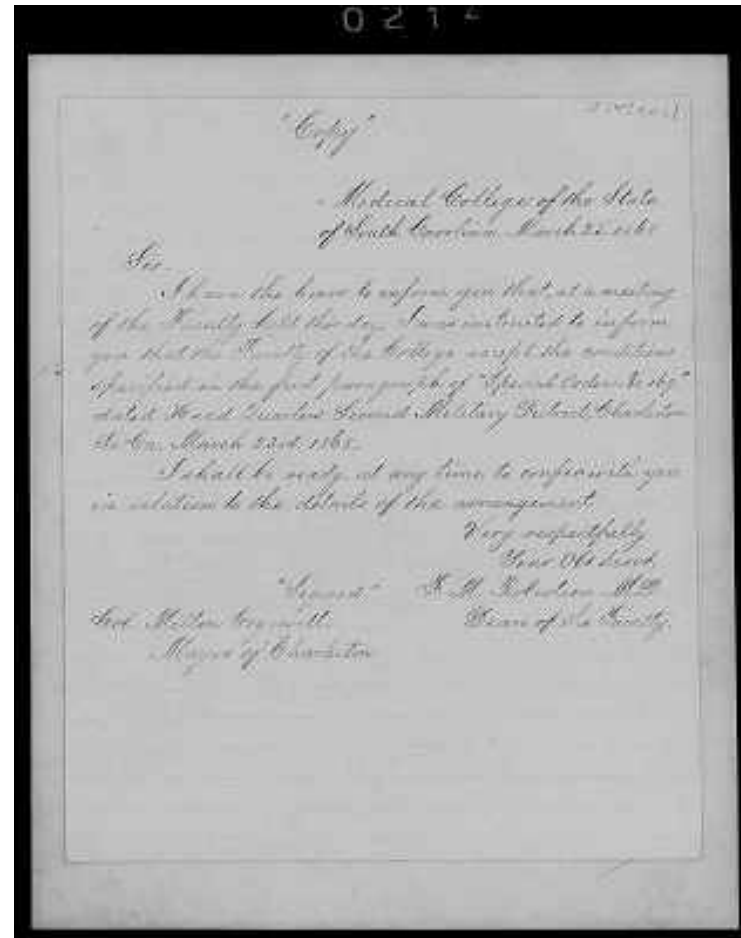 021
"Copy"
Medical College of the State
of South Carolina March 1868
Sir
I have the honor to inform you that, at a meeting
of the Faculty held this day, I was instructed to inform
you that the Faculty of the College accept the conditions
specified in the first paragraph of "Special Orders No
dated Head Quarters Second Military District, Charleston
So Ca. March 23rd 1868.
I shall be ready at any time to confer with you
in relation to the details of the arrangement.
Very respectfully
Your Obt Servt
"Signed" F. M. Robertson M.D.
Genl Milton Cogswell Dean of the Faculty.
Mayor of Charleston